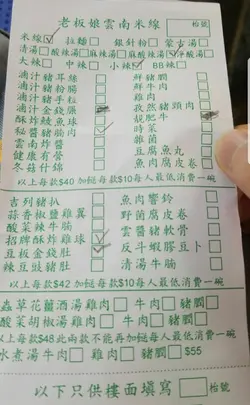 老板娘雲南米線 枱號
米線 拉麵 銀針粉
清湯 酸辣湯 麻辣湯
大辣 中辣 小辣 BB辣
滷汁豬耳絲 鮮豬膶
滷汁豬粉腸 鮮牛肉
滷汁豬手粒 雞肉
滷汁金錢𦟌 炙然豬頸肉
酥炸鯪魚球 靚肥牛
秘醬豬腩肉 時菜
雲南炸醬 雜菌
健康有營 豆腐魚丸
冬菇什錦 魚肉腐皮卷
以上每款$40 加餸每款$10每人最低消費一碗
吉列豬扒 魚肉響鈴
蒜香椒鹽雞翼 野菌腐皮卷
酸菜辣牛腩 雲醬豬軟骨
招牌酥炸雞球 反斗蝦膠豆卜
豆板金錢肚 清湯牛腩
辣豆豉豬肚
以上每款$42 加餸每款$10每人最低消費一碗
蟲草花薑酒湯雞肉 牛肉 豬膶
酸菜胡椒湯雞肉 牛肉 豬膶
以上每款$48此兩款不能再加餸每人最低消費一碗
水煮湯牛肉 雞肉 豬膶 $55
以下只供樓面填寫 枱號